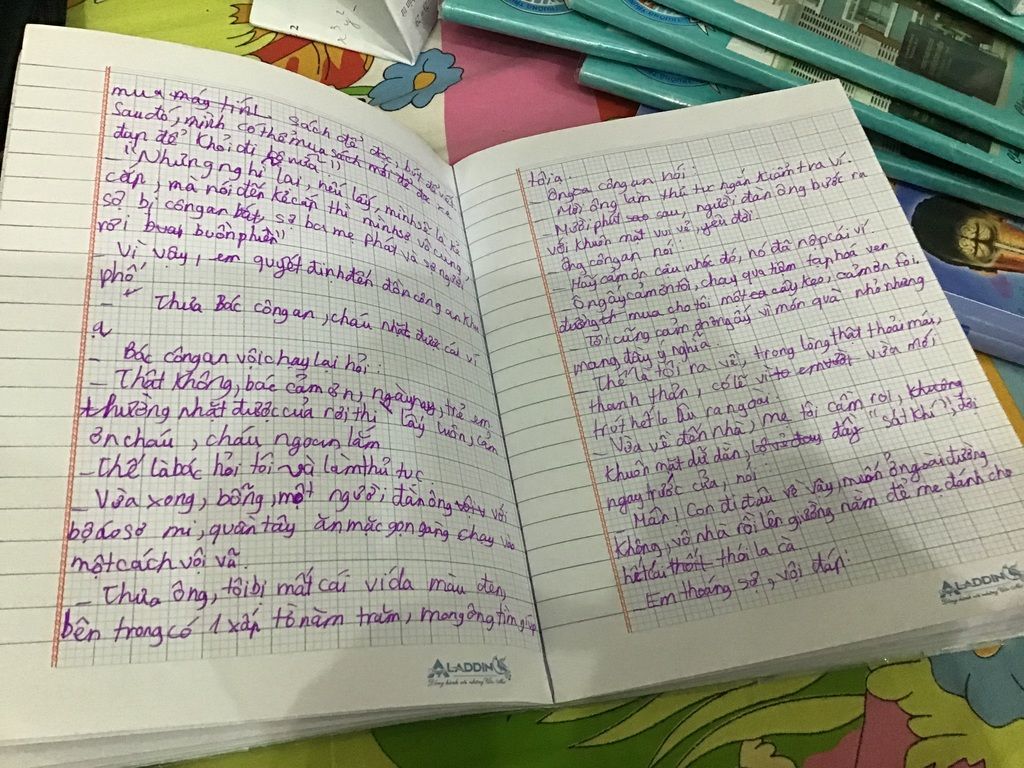 mua máy tính, sách để đọc, bút để viết
Sau đó, mình có thể mua sách mới để đọc
đạp để khỏi đi bộ nữa"
_ "Nhưng nghĩ lại, nếu lấy, mình sẽ là kẻ
cắp, mà nói đến kẻ cắp thì mình sợ vô cùng,
sợ bị công an bắt, sợ ba mẹ phạt và sợ người
rơi buồn phiền"
_ Vì vậy, em quyết định đến đồn công an khu
phố
_ Thưa Bác công an, cháu nhặt được cái ví
ạ
_ Bác công an vội chạy lại hỏi:
_ Thật không, bác cảm ơn, ngày nay, trẻ em
thường nhặt được của rơi thì lấy luôn, cảm
ơn cháu, cháu ngoan lắm
_ Thế là bác hỏi tôi và làm thủ tục
_ Vừa xong, bỗng, một người đàn ông với
bộ áo sơ mi, quần tây ăn mặc gọn gàng chạy vào
một cách vội vã.
_ Thưa ông, tôi bị mất cái ví da màu đen,
bên trong có 1 xấp tờ năm trăm, mong ông tìm giúp
ALADDIN
tôi ạ.
_ Ông công an nói:
_ Mời ông làm thủ tục ngắn kiểm tra ví.
_ Mười phút sao sau, người đàn ông bước ra
với khuôn mặt vui vẻ, yêu đời
_ Ông công an nói:
_ Hãy cảm ơn cậu nhóc đó, nó đã nộp cái ví
_ Ông ấy cảm ơn tôi, chạy qua tiệm tạp hóa ven
đường mua cho tôi một cây kẹo, cảm ơn tôi.
_ Tôi cũng cảm ơn ông ấy vì món quà nhỏ nhưng
mang đầy ý nghĩa.
_ Thế là tôi ra về, trong lòng thật thoải mái,
thanh thản, có lẽ vì vừa mới
trút hết lo âu ra ngoài.
_ Vừa về đến nhà, mẹ tôi cầm roi,
khuôn mặt dữ dằn, đầy "sát khí", đợi
ngay trước cửa, nói:
_ Mân, con đi đâu về vậy, muốn ở ngoài đường
không, vô nhà rồi lên giường nằm để mẹ đánh cho
hết cái thói la cà.
_ Em thoáng sợ, vội đáp:
ALADDIN